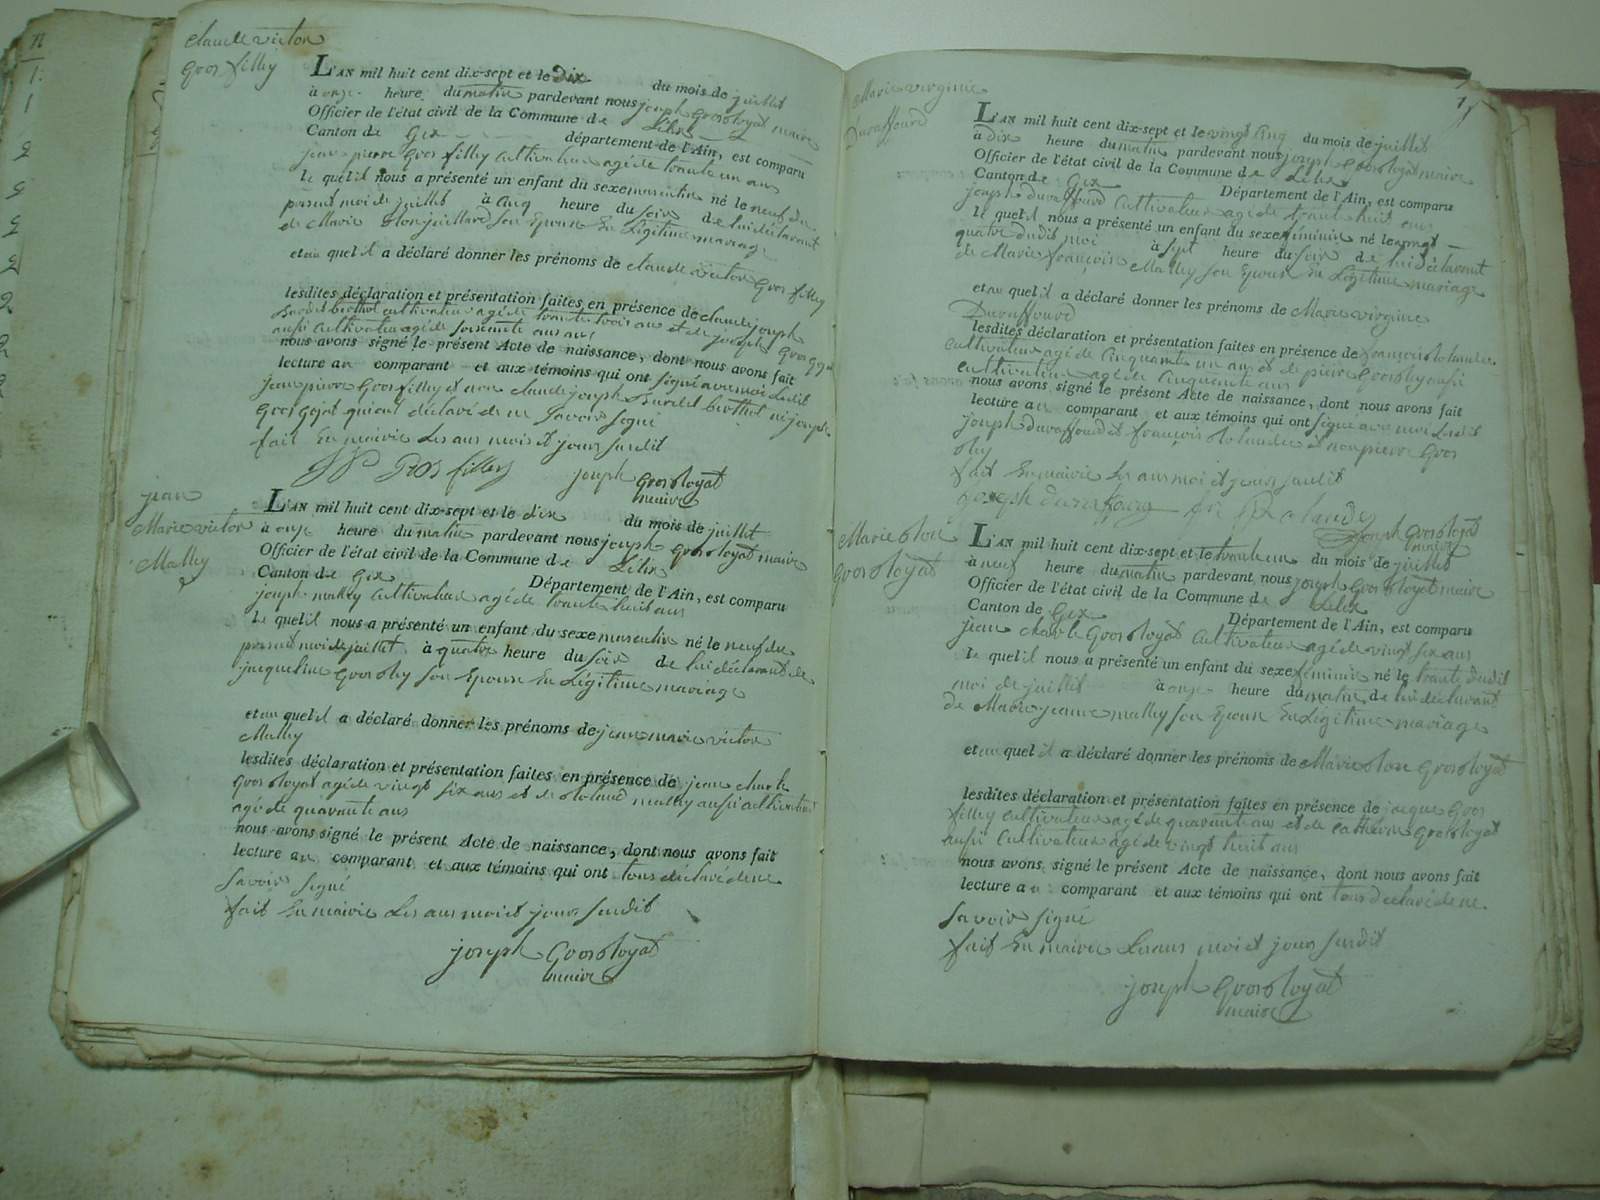 Claude victor
Gros fillly
L'AN mil huit cent dix-sept et le Dix du mois de juillet
à onze heure du matin pardevant nous joseph Grosgoyat maire
Officier de l'état civil de la Commune de Lélex
Canton de Gex département de l'Ain, est comparu
jean pierre Gros fillly cultivateur agé de trante un ans
le quel il nous a présenté un enfant du sexe masculin né le neuf du
present moi de juillet à cinq heure du soir de lui déclarant
de Marie son Epouse En Légitime mariage
et au quel il a déclaré donner les prénoms de claude victor Gros fillly
lesdites déclaration et présentation faites en présence de claude joseph
cultivateur agé de trante trois ans et de joseph Gros
aussi cultivateur agé de soixante ans
nous avons signé le présent Acte de naissance, dont nous avons fait
lecture au comparant et aux témoins qui ont signé avec moi Ledit
jean pierre Gros fillly et non claude joseph ni joseph
qui ont déclaré de ne Savoir signé
fait En mairie Les ans mois et jours susdit
JP Gros fillly joseph Grosgoyat
maire
jean
Marie victor
Mallly
L'AN mil huit cent dix-sept et le dix du mois de juillet
à onze heure du matin pardevant nous joseph Grosgoyat maire
Officier de l'état civil de la Commune de Lélex
Canton de Gex Département de l'Ain, est comparu
joseph mallly cultivateur agé de trante huit ans
Le quel il nous a présenté un enfant du sexe masculin né le neuf du
present moi de juillet à quatre heure du soir de lui déclarant de
jacqueline son Epouse En Légitime mariage
et au quel il a déclaré donner les prénoms de jean marie victor
Mallly
lesdites déclaration et présentation faites en présence de jean charle
Grosgoyat agé de vingt six ans et de roland mallly aussi cultivateur
agé de quarante ans
nous avons signé le présent Acte de naissance, dont nous avons fait
lecture au comparant et aux témoins qui ont tous déclaré de ne
Savoir Signé
fait En mairie Les ans moi et jour susdit
joseph Grosgoyat
maire
Marie virginie
Duraffourd
L'AN mil huit cent dix-sept et le vingt Cinq du mois de juillet
à dix heure du matin pardevant nous joseph Grosgoyat maire
Officier de l'état civil de la Commune de Lélex
Canton de Gex Département de l'Ain, est comparu
joseph duraffourd cultivateur agé de trante huit ans
le quel il nous a présenté un enfant du sexe féminin né le vingt
quatre dudit moi à sept heure du soir de lui déclarant
de Marie françoise Mallly son Epouse En Légitime mariage
et au quel il a déclaré donner les prénoms de Marie virginie
Duraffourd
lesdites déclaration et présentation faites en présence de françois
cultivateur agé de cinquante un ans et de pierre aussi
cultivateur agé de cinquante ans
nous avons signé le présent Acte de naissance, dont nous avons fait
lecture au comparant et aux témoins qui ont signé avec moi Ledit
joseph duraffourd et françois et non pierre Gros
fait En mairie Les ans moi et jours susdit
joseph duraffourg
joseph Grosgoyat
maire
Marie
Grosgoyat
L'AN mil huit cent dix-sept et le trante un du mois de juillet
à neuf heure du matin pardevant nous joseph Grosgoyat maire
Officier de l'état civil de la Commune de Lélex
Canton de Gex Département de l'Ain, est comparu
jean charle Grosgoyat cultivateur agé de vingt six ans
Le quel il nous a présenté un enfant du sexe féminin né le trante dudit
moi de juillet à onze heure du matin de lui déclarant
de Marie jeanne mallly son Epouse En Légitime mariage
et au quel il a déclaré donner les prénoms de Marie Grosgoyat
lesdites déclaration et présentation faites en présence de jacque Gros
fillly cultivateur agé de quarante ans et de Grosgoyat
aussi cultivateur agé de vingt huit ans
nous avons signé le présent Acte de naissance, dont nous avons fait
lecture au comparant et aux témoins qui ont tous déclaré de ne
Savoir signé
fait En mairie Les ans moi et jour susdit
joseph Grosgoyat
maire